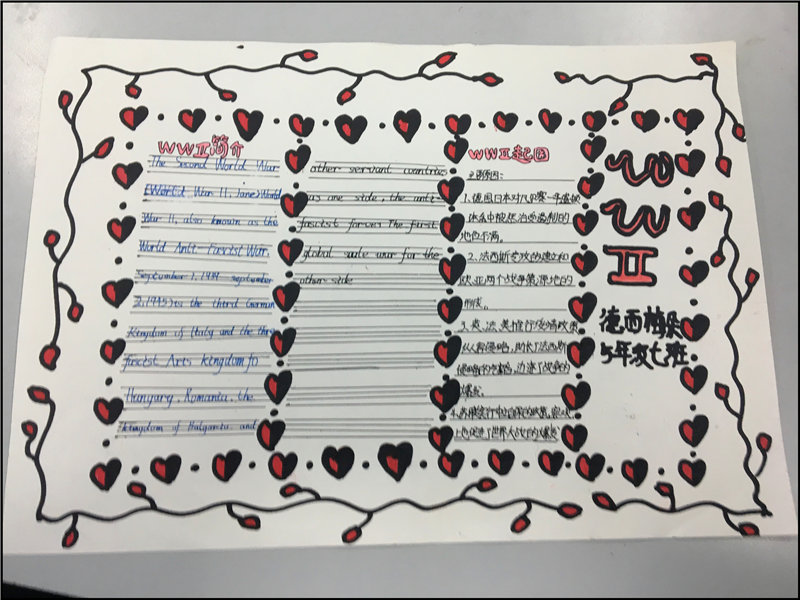 WWII简介
The Second World War
(World War II, Jane2World
War II, also known as the
World Anti-Fascist War,
September 1, 1939 september
2, 1945) is the third German
Kingdom of Italy and the thre
fascist Axis kingdom fo
Hungary, Romania, the
kingdom of Bulgaria, and
other servant countries
as one side, the anti-
fascist forces The first
global scale war for the
other side
WWII起因
主要原因:
1.德国日本对凡尔赛—华盛顿
体系中
地位不满。
2、法西斯专政的建立和
欧、亚两个战争策源地的
形成。
3.英、法、美推行绥靖政策
助长了法西斯
侵略的
爆发。
4.苏联
也促进了世界大战的爆发
WW
II
五年级七班